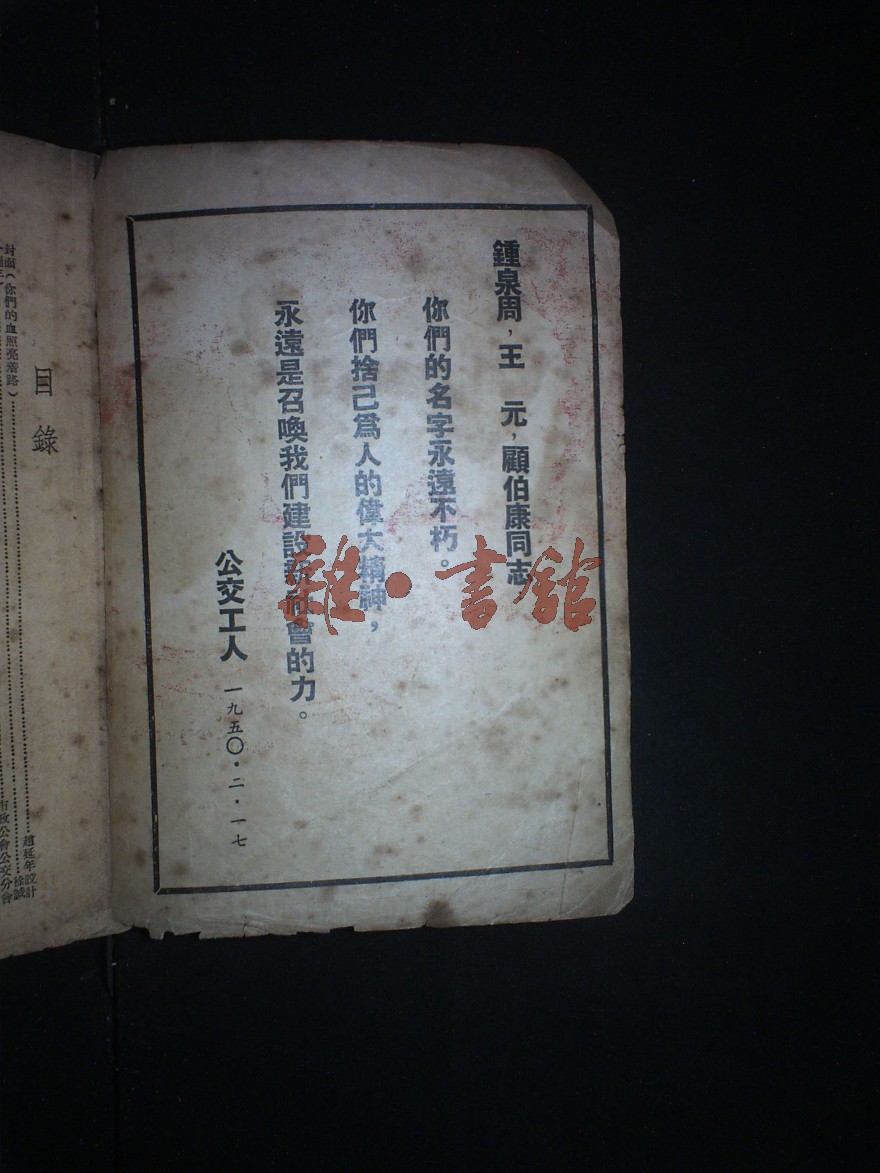 鍾泉周，王　元，顧伯康同志
你們的名字永遠不朽。
你們捨己爲人的偉大精神，
永遠是召喚我們建設新社會的力。
公交工人 一九五〇・二・一七
雜・書館
目錄
封面（你們的血照亮着路）……趙延年設計
市政公會公交分會